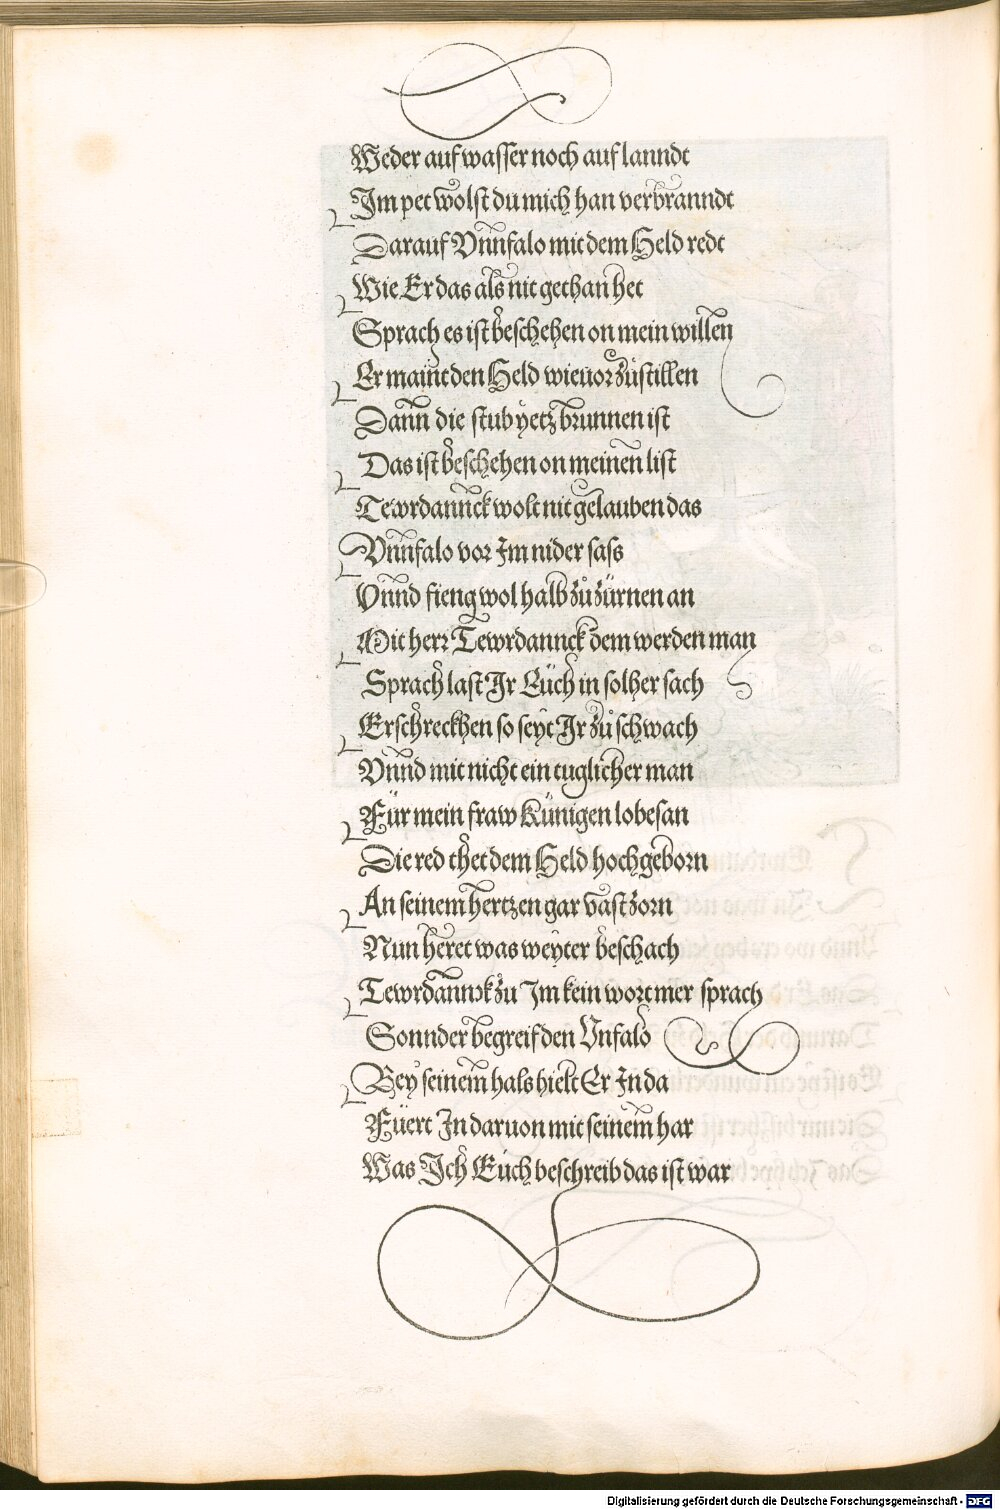 Weder auf wasser noch auf lanndt
Im pet wolst du mich han verbranndt
Darauf Vnnfalo mit dem Held redt
Wie Er das als nit gethan het
Sprach es ist beschehen on mein willen
Er maint den Held wie uor zůstillen
Dann die stub yetz brunnen ist
Das ist beschehen on meinen list
Tewrdannck wolt nit gelauben das
Vnnfalo vor Im nider sass
Vnnd fieng wol halb zů zürnen an
Mit herr Tewrdannck dem werden man
Sprach last Ir Eüch in solher sach
Erschreckhen so seyt Ir zů schwach
Vnnd mit nicht ein tuglicher man
Für mein fraw Künigen lobesan
Die red thet dem Held hochgeborn
An seinem hertzen gar vast zorn
Nun heret was weyter beschach
Tewrdannck zů Im kein wort mer sprach
Sonnder begreif den Vnfalo
Bey seinem hals hielt Er In da
Füert In daruon mit seinem har
Was Ich Eüch beschreib das ist war
Digitalisierung gefördert durch die Deutsche Forschungsgemeinschaft - DFG